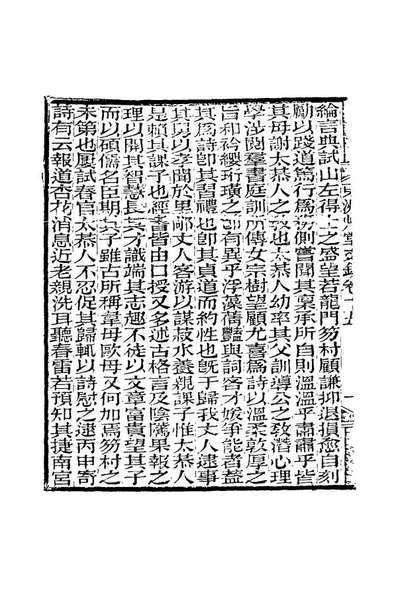 綸言典試山左得士之盛望若龍門芴村顧謙抑退損愈自刻
勵以踐道篤行為務側嘗聞其稟承所自則溫溫乎肅肅乎皆
其母謝太恭人之教也太恭人幼率其父訓導公之教潛心理
學涉閱羣書庭訓所傳女宗樹望顧尤喜為詩以溫柔敦厚之
旨和衿纓珩璜之節有異乎浮藻蒨豔與詞客才媛爭能者蓋
其為詩即其習禮也即其貞道而約性也旣于歸我丈人逮事
其舅以孝聞於里鄰丈人客游以謀菽水養親課子惟太恭人
是賴其課子也經書皆由口授又多述古格言及陰隲果報之
理以開其智慧長其才識端其志趣不徒以文章富貴望其子
而以碩儒名臣期其子雖古所稱韋母歐母又何加焉芴村之
未第也屢試春官太恭人不忍促其歸輒以詩慰之逮丙申奇
詩有云報道杏花消息近老親洗耳聽春雷若預知其捷南宮